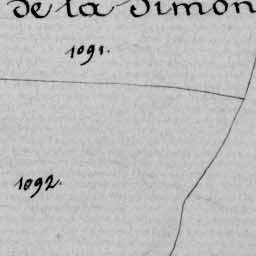 de la Simon
1091.
1092.